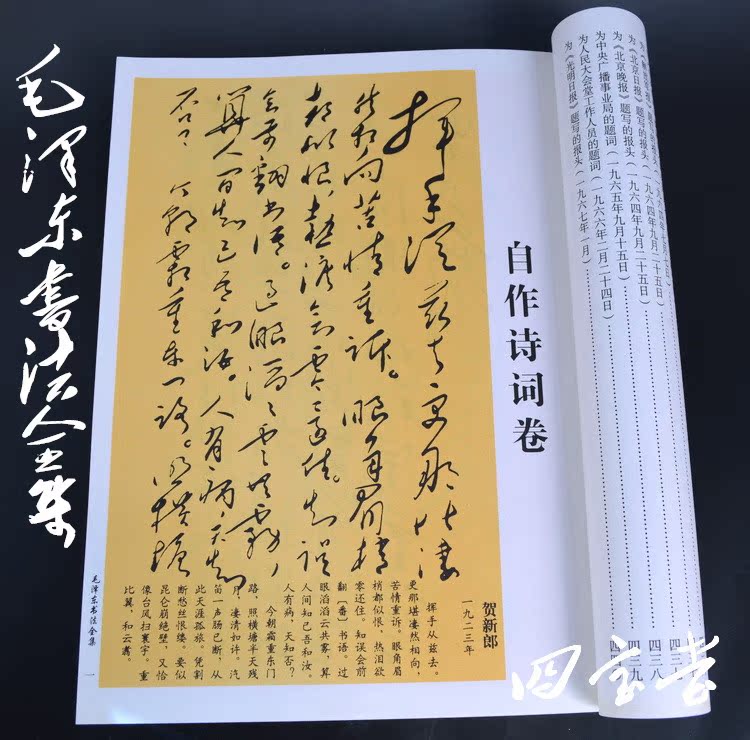 毛泽东书法全集
为《北京日报》题写的报头(一九六四年九月二十五日)
为《北京晚报》题写的报头(一九六四年九月二十五日)
为中央广播事业局的题词(一九六五年九月十五日)
为人民大会堂工作人员的题词(一九六六年二月二十四日)
为《光明日报》题写的报头(一九六七年一月)
自作诗词卷
挥手从兹去更那堪凄
然相向苦情重诉。眼角眉梢
都似恨,热泪欲零还住。知误
会前翻书语。过眼滔滔云共雾,
算人间知己吾和汝。人有病,天知
否? 今朝霜重东门路。照横塘
贺新郎
一九二三年
挥手从兹去。
更那堪凄然相向,
苦情重诉。眼角眉
梢都似恨,热泪欲
零还住。知误会前
翻(番)书语。过
眼滔滔云共雾,算
人间知己吾和汝。
人有病,天知否?
今朝霜重东门
路,照横塘半天残
月,凄清如许。汽
笛一声肠已断,从
此天涯孤旅。凭割
断愁丝恨缕。要似
昆仑崩绝壁,又恰
像台风扫寰宇。重
比翼,和云翥。
毛泽东书法全集
一
四宝堂